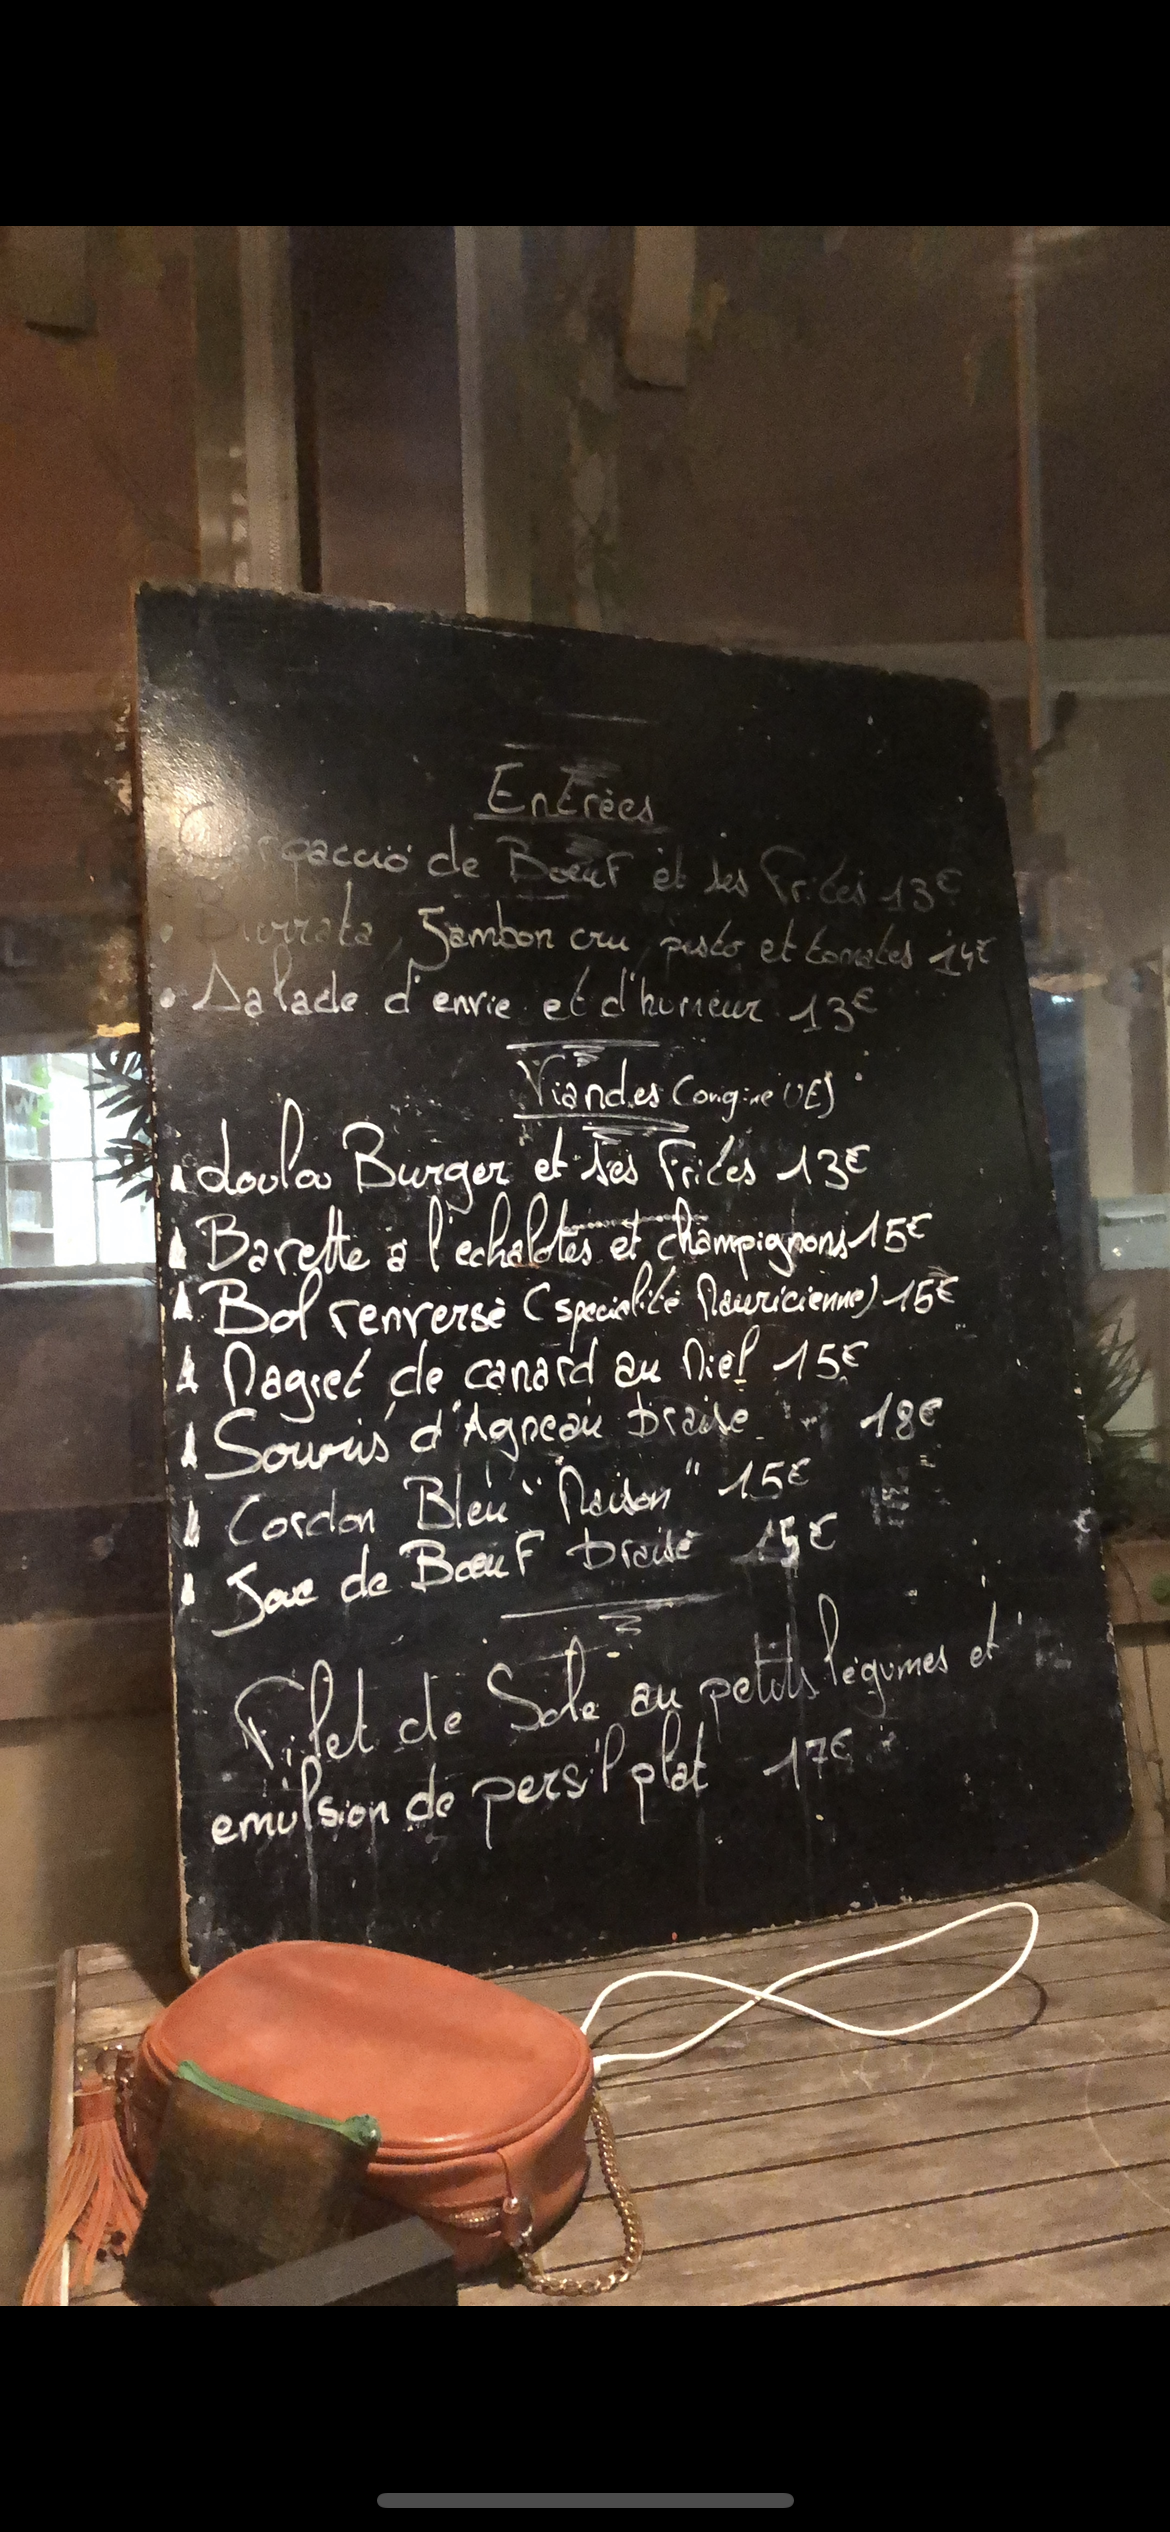 Entrées
Carpaccio de Boeuf et ses Frites 13€
Burrata, Jambon cru, pesto et tomates 14€
Salade d'envie et d'humeur 13€
Viandes (origine UE)
Loulou Burger et ses Frites 13€
Bavette a l'echalotes et champignons 15€
Bol renversé (spécialité Mauricienne) 15€
Magret de canard au Miel 15€
Souris d'Agneau Braisé 18€
Cordon Bleu "Maison" 15€
Joue de Boeuf Braisé 15€
Filet de Sole au petits légumes et
emulsion de persil plat 17€